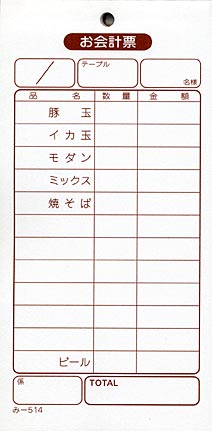 お会計票
／
テーブル
名様
品 名 数 量 金 額
豚 玉
イカ玉
モダン
ミックス
焼そば
ビール
係 TOTAL
みー514